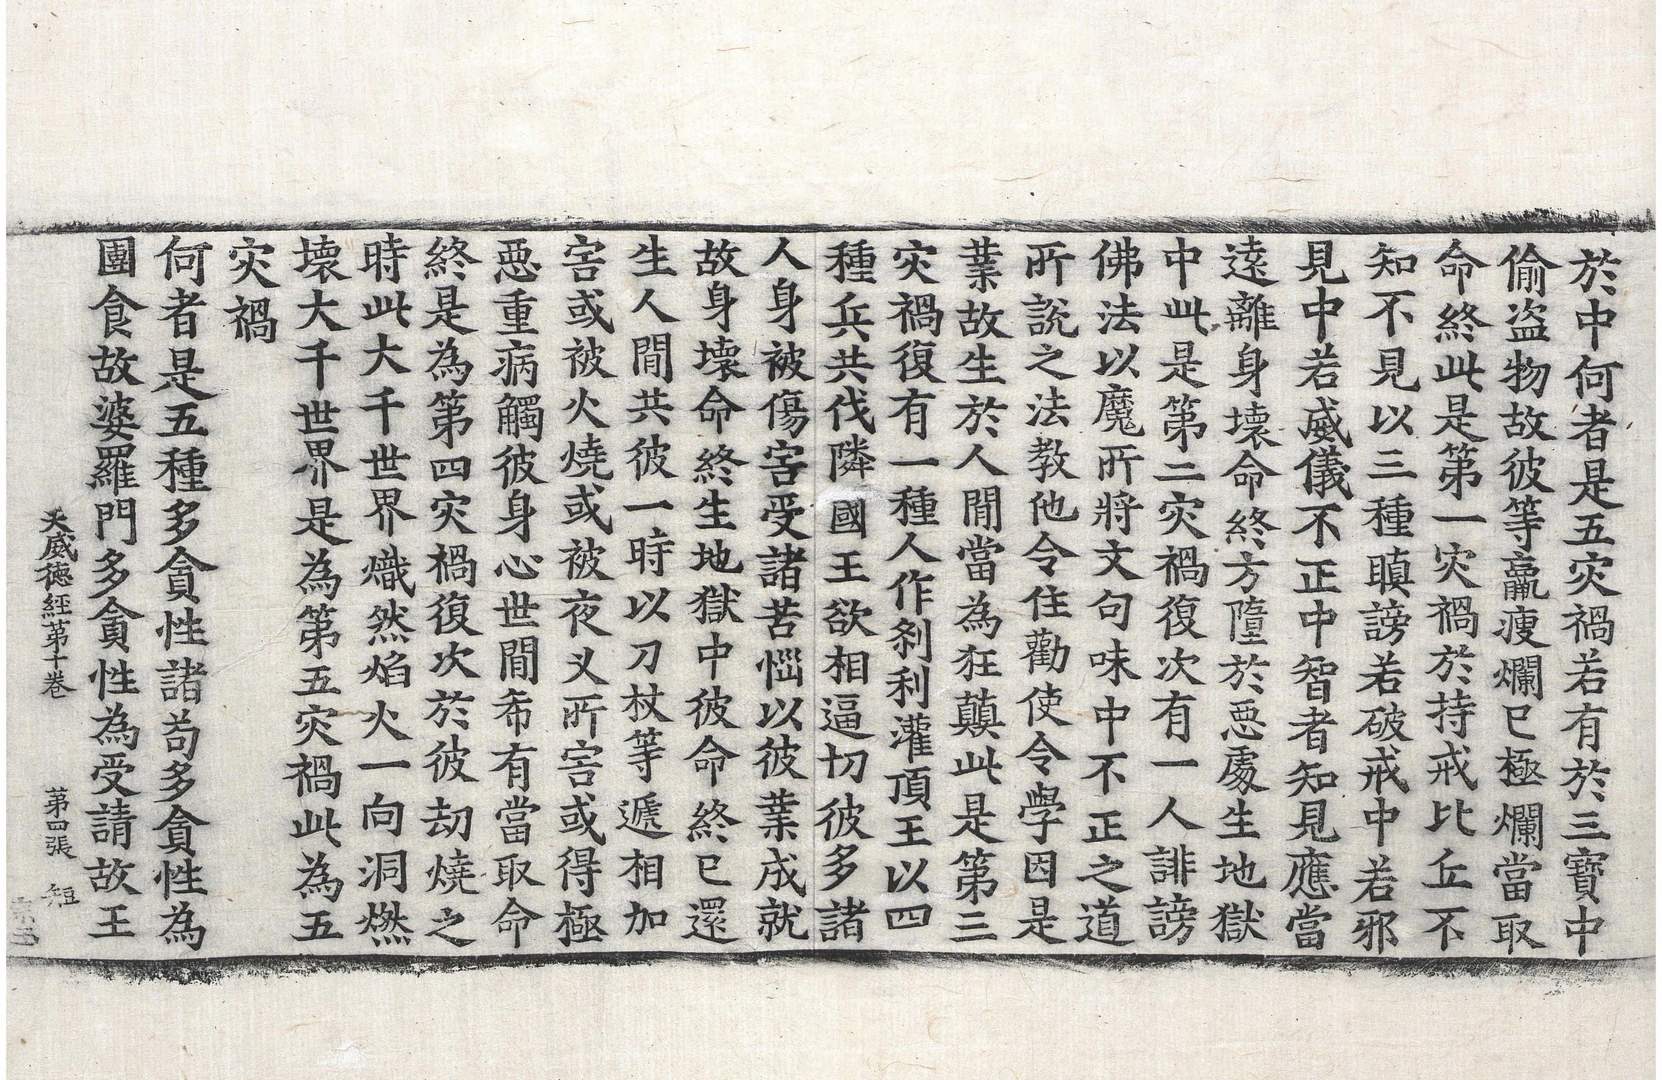 於中何者是五灾禍若有於三寶中
偷盗物故彼等羸瘦爛已極爛當取
命終此是第一灾禍於持戒比丘不
知不見以三種瞋謗若破戒中若邪
見中若威儀不正中智者知見應當
遠離身壞命終方墮於惡處生地獄
中此是第二灾禍復次有一人誹謗
佛法以魔所將文句味中不正之道
所說之法教他令住勸使令學因是
業故生於人間當為狂顛此是第三
灾禍復有一種人作刹利灌頂王以四
種兵共伐隣國王欲相逼切彼多諸
人身被傷害受諸苦惱以彼業成就
故身壞命終生地獄中彼命終已還
生人間共彼一時以刀杖等遞相加
害或被火燒或被夜叉所害或得極
惡重病觸彼身心世間希有當取命
終是為第四灾禍復次於彼劫燒之
時此大千世界熾然焰火一向洞燃
壞大千世界是為第五灾禍此為五
灾禍
何者是五種多貪性諸苟多貪性為
團食故婆羅門多貪性為受請故王
大威德經第十卷 第四張 短